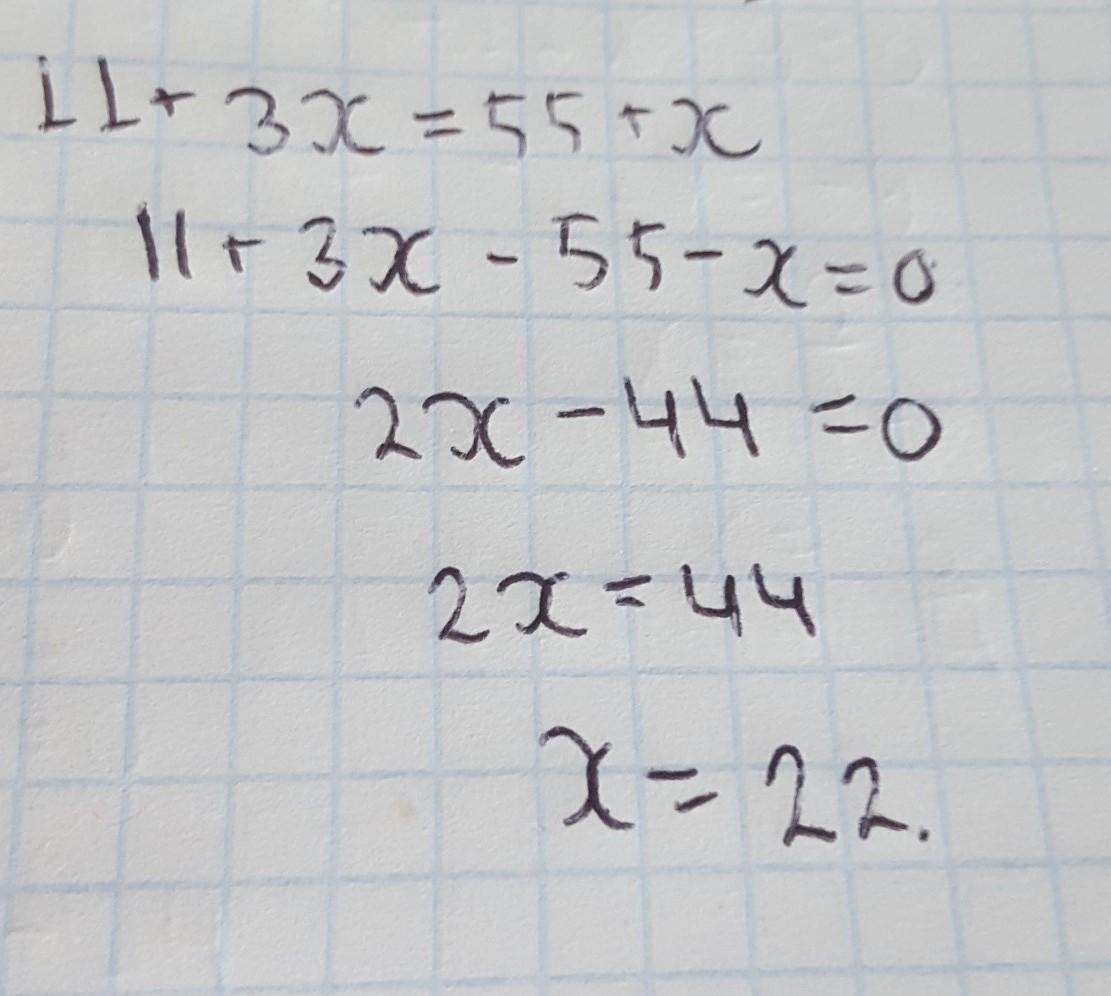 11+3x=55+x
11+3x-55-x=0
2x-44=0
2x=44
x=22.